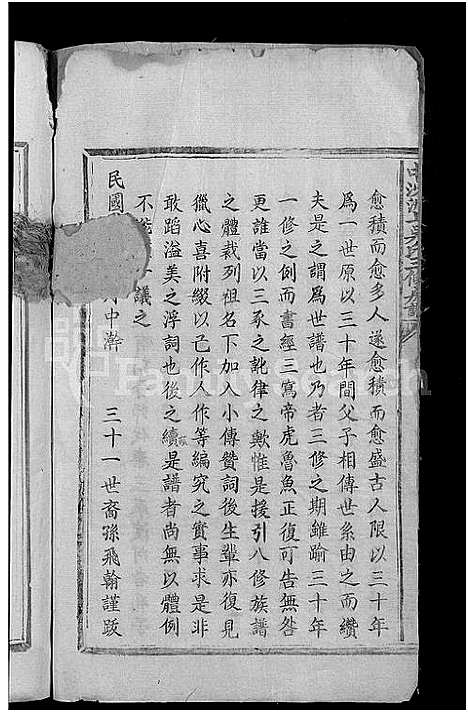 愈積而愈多人遂愈積而愈盛古人限以三十年
為一世原以三十年間父子相傳世系由之而纘
夫是之謂為世譜也乃者三修之期雖踰三十年
一修之例而書經三寫帝虎魯魚正復可告無咎
更誰當以三豕之訛律之歟惟是援引八修族譜
之體裁列祖名下加入小傳贊詞後生輩亦復見
獵心喜附綴以己作人作等編究之實事求是非
敢蹈溢美之浮詞也後之續是譜者尚無以體例
不 議之
民國 中澣 三十一世裔孫飛翰謹跋
FamilySearch